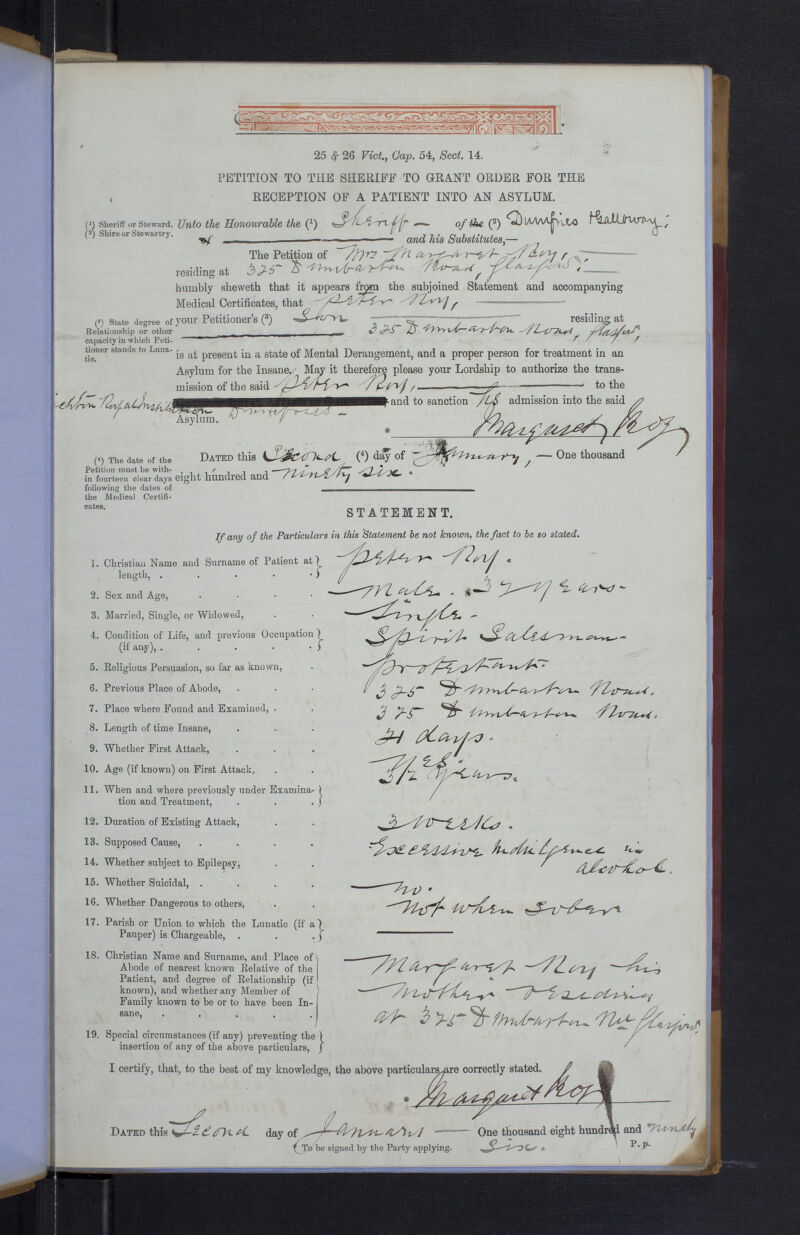 25 & 26 Vict., Cap. 54, Sect. 14.
PETITION TO THE SHERIFF TO GRANT ORDER FOR THE
RECEPTION OF A PATIENT INTO AN ASYLUM.
(¹) Sheriff or Steward.
(²) Shire or Stewartry.
Unto the Honourable the (¹) Sheriff — of the (²) Dumfries & Galloway;
of — and his Substitutes,—
The Petition of Mrs Margaret Roy,
residing at 325 Dumbarton Road, Glasgow;
humbly sheweth that it appears from the subjoined Statement and accompanying
Medical Certificates, that Peter Roy,
(³) State degree of
Relationship or other
capacity in which Peti-
tioner stands to Luna-
tic.
your Petitioner's (³) Son residing at
325 Dumbarton Road, Glasgow,
is at present in a state of Mental Derangement, and a proper person for treatment in an
Asylum for the Insane. May it therefore please your Lordship to authorize the trans-
mission of the said Peter Roy, to the
Royal Institution Dumfries — and to sanction his admission into the said
Asylum.
* Margaret Roy
(⁴) The date of the
Petition must be with-
in fourteen clear days
following the dates of
the Medical Certifi-
cates.
DATED this Second (⁴) day of January, — One thousand
eight hundred and ninety six.
STATEMENT.
If any of the Particulars in this Statement be not known, the fact to be so stated.
1. Christian Name and Surname of Patient at
length, . Peter Roy.
2. Sex and Age, Male. 32 years.
3. Married, Single, or Widowed, Single.
4. Condition of Life, and previous Occupation
(if any), . Spirit Salesman
5. Religious Persuasion, so far as known, Protestant.
6. Previous Place of Abode, 325 Dumbarton Road.
7. Place where Found and Examined, . 325 Dumbarton Road.
8. Length of time Insane, 21 days.
9. Whether First Attack, Yes.
10. Age (if known) on First Attack, 32 years.
11. When and where previously under Examina-
tion and Treatment,
12. Duration of Existing Attack, 3 weeks.
13. Supposed Cause, Excessive Indulgence in
alcohol.
14. Whether subject to Epilepsy,
15. Whether Suicidal, . No.
16. Whether Dangerous to others, Not when sober
17. Parish or Union to which the Lunatic (if a
Pauper) is Chargeable, .
18. Christian Name and Surname, and Place of
Abode of nearest known Relative of the
Patient, and degree of Relationship (if
known), and whether any Member of
Family known to be or to have been In-
sane,
Margaret Roy his
mother residing
at 325 Dumbarton Rd Glasgow.
19. Special circumstances (if any) preventing the
insertion of any of the above particulars,
I certify, that, to the best of my knowledge, the above particulars are correctly stated.
* Margaret Roy
DATED this Second day of January — One thousand eight hundred and ninety
six.
* To be signed by the Party applying.
P.p.